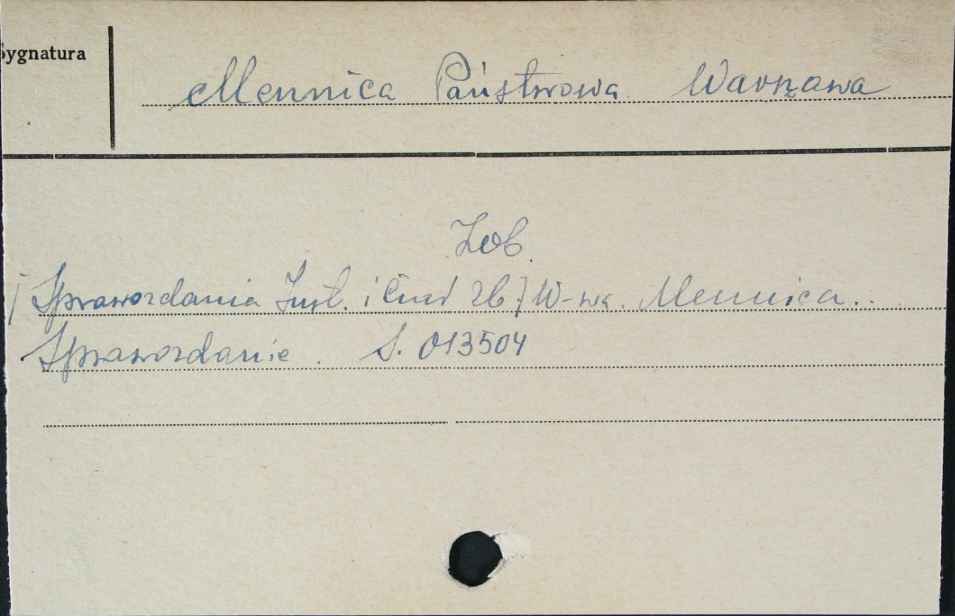 Sygnatura
Mennica Państwowa Warszawa
Zob.
Sprawozdania Inst. i 2b] W-wa. Mennica..
Sprawozdanie. S. 013504